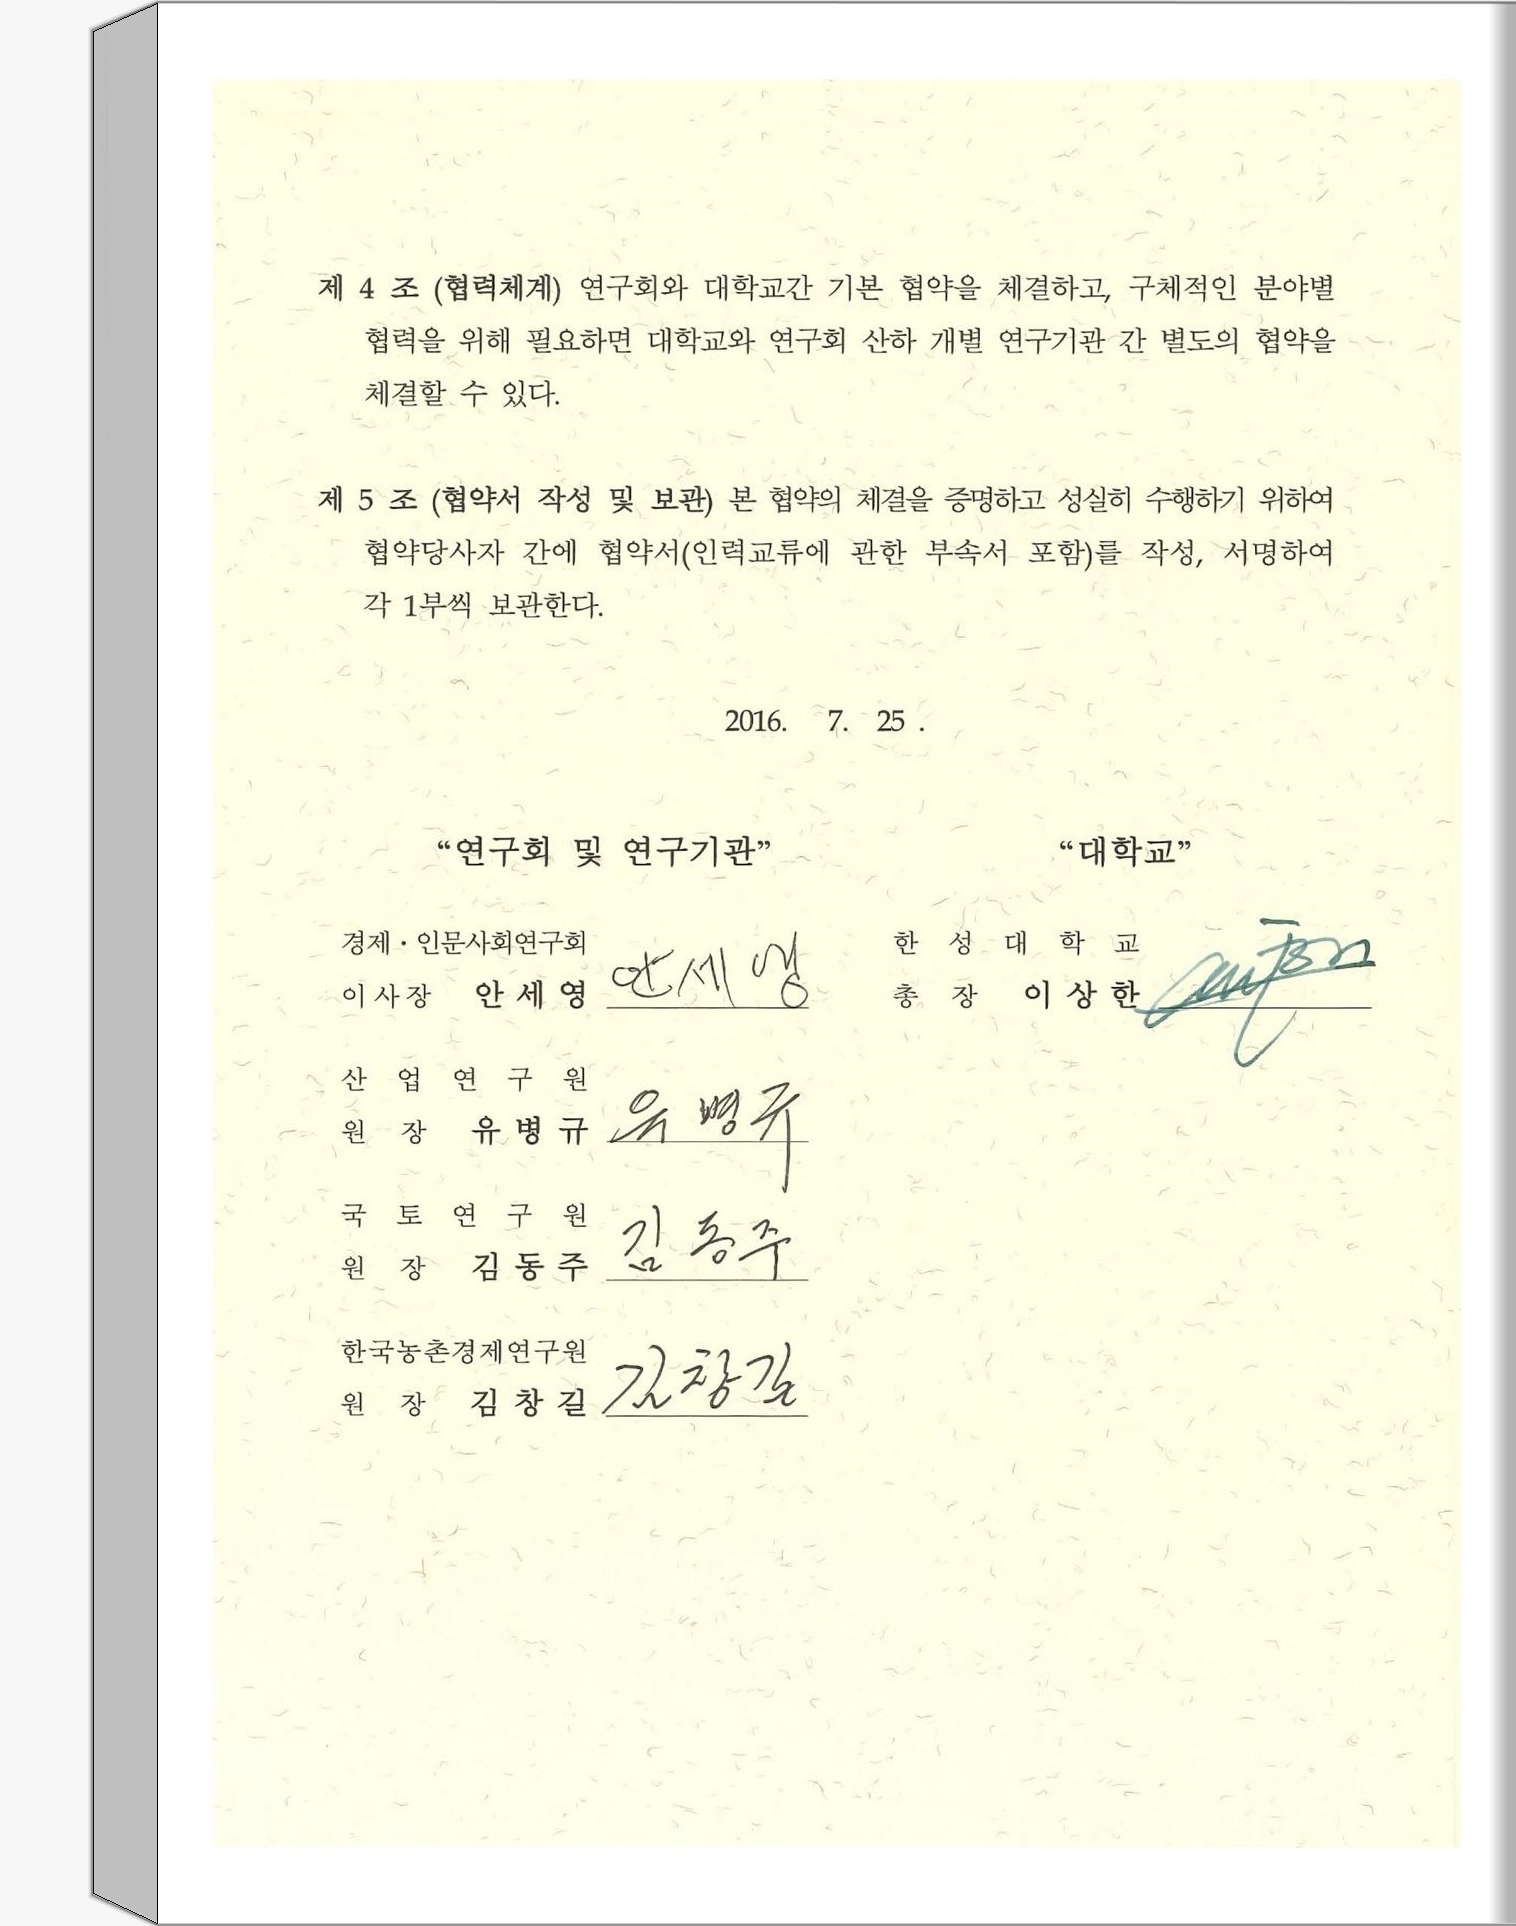 제 4 조 (협력체계) 연구회와 대학교간 기본 협약을 체결하고, 구체적인 분야별
협력을 위해 필요하면 대학교와 연구회 산하 개별 연구기관 간 별도의 협약을
체결할 수 있다.
제 5 조 (협약서 작성 및 보관) 본 협약의 체결을 증명하고 성실히 수행하기 위하여
협약당사자 간에 협약서(인력교류에 관한 부속서 포함)를 작성, 서명하여
각 1부씩 보관한다.
2016. 7. 25 .
“연구회 및 연구기관”
경제·인문사회연구회
이사장 안세영 안세영
산업연구원
원장 유병규 유병규
국토연구원
원장 김동주 김동주
한국농촌경제연구원
원장 김창길 김창길
“대학교”
한성대학교
총장 이상한